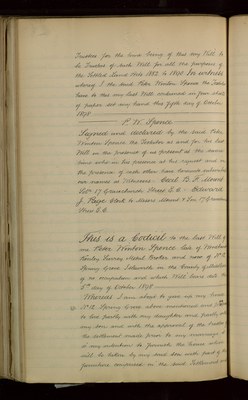 Trustees for the time being of this my Will to
be Trustees of such Will for all the purposes of
the Settled Land Acts 1882 to 1890 In witness
whereof I the said Peter Winton Spence the
have to this my last Will contained in four sheets
of paper set my hand this fifth day of October
1898
P. W. Spence
Signed and declared by the said Peter
Winton Spence the Testator as and for his last
Will in the presence of us present at the same
time who in his presence at his request and in
the presence of each other have hereunto subscribed
our names as Witnesses
17 Gracechurch Street E.C. Edward
J. Paige Clerk to Messrs
E.C.
This is a Codicil to the last Will of
me Peter Winton Spence late of
Surrey Metal Broker and now of
Grove in the County of
of no occupation and which Will bears date the
5th day of October 1898
Whereas I am about to give up my house
Grove above mentioned and
to live partly with my daughter and partly with
my son and with the approval of the trustees of
the settlement made prior to my marriage
it is my intention to furnish the house which
will be taken by my said son with part of the
furniture comprised in the said Settlement and